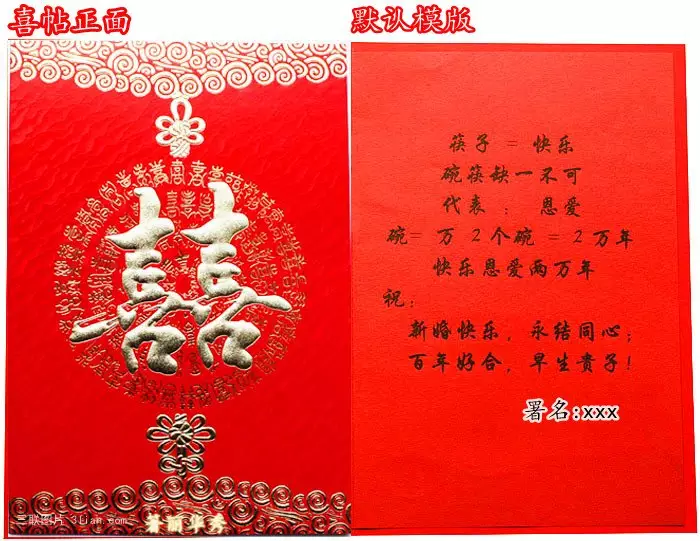 喜帖正面
默认模版
囍
三联图片 3lian.com
筷子 = 快乐
碗筷缺一不可
代表： 恩爱
碗= 万 2个碗 = 2万年
快乐恩爱两万年
祝：
新婚快乐，永结同心；
百年好合，早生贵子！
署名:xxx